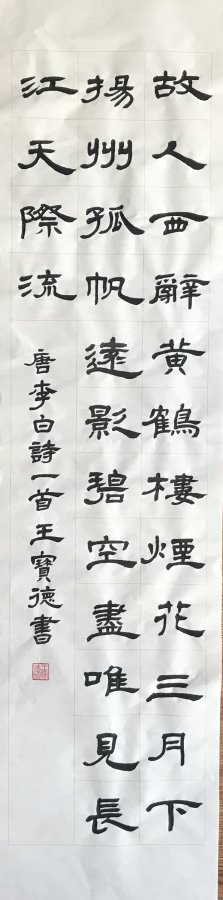 故人西辭黃鶴樓煙花三月下
揚州孤帆遠影碧空盡唯見長
江天際流
唐李白詩一首王寶德書